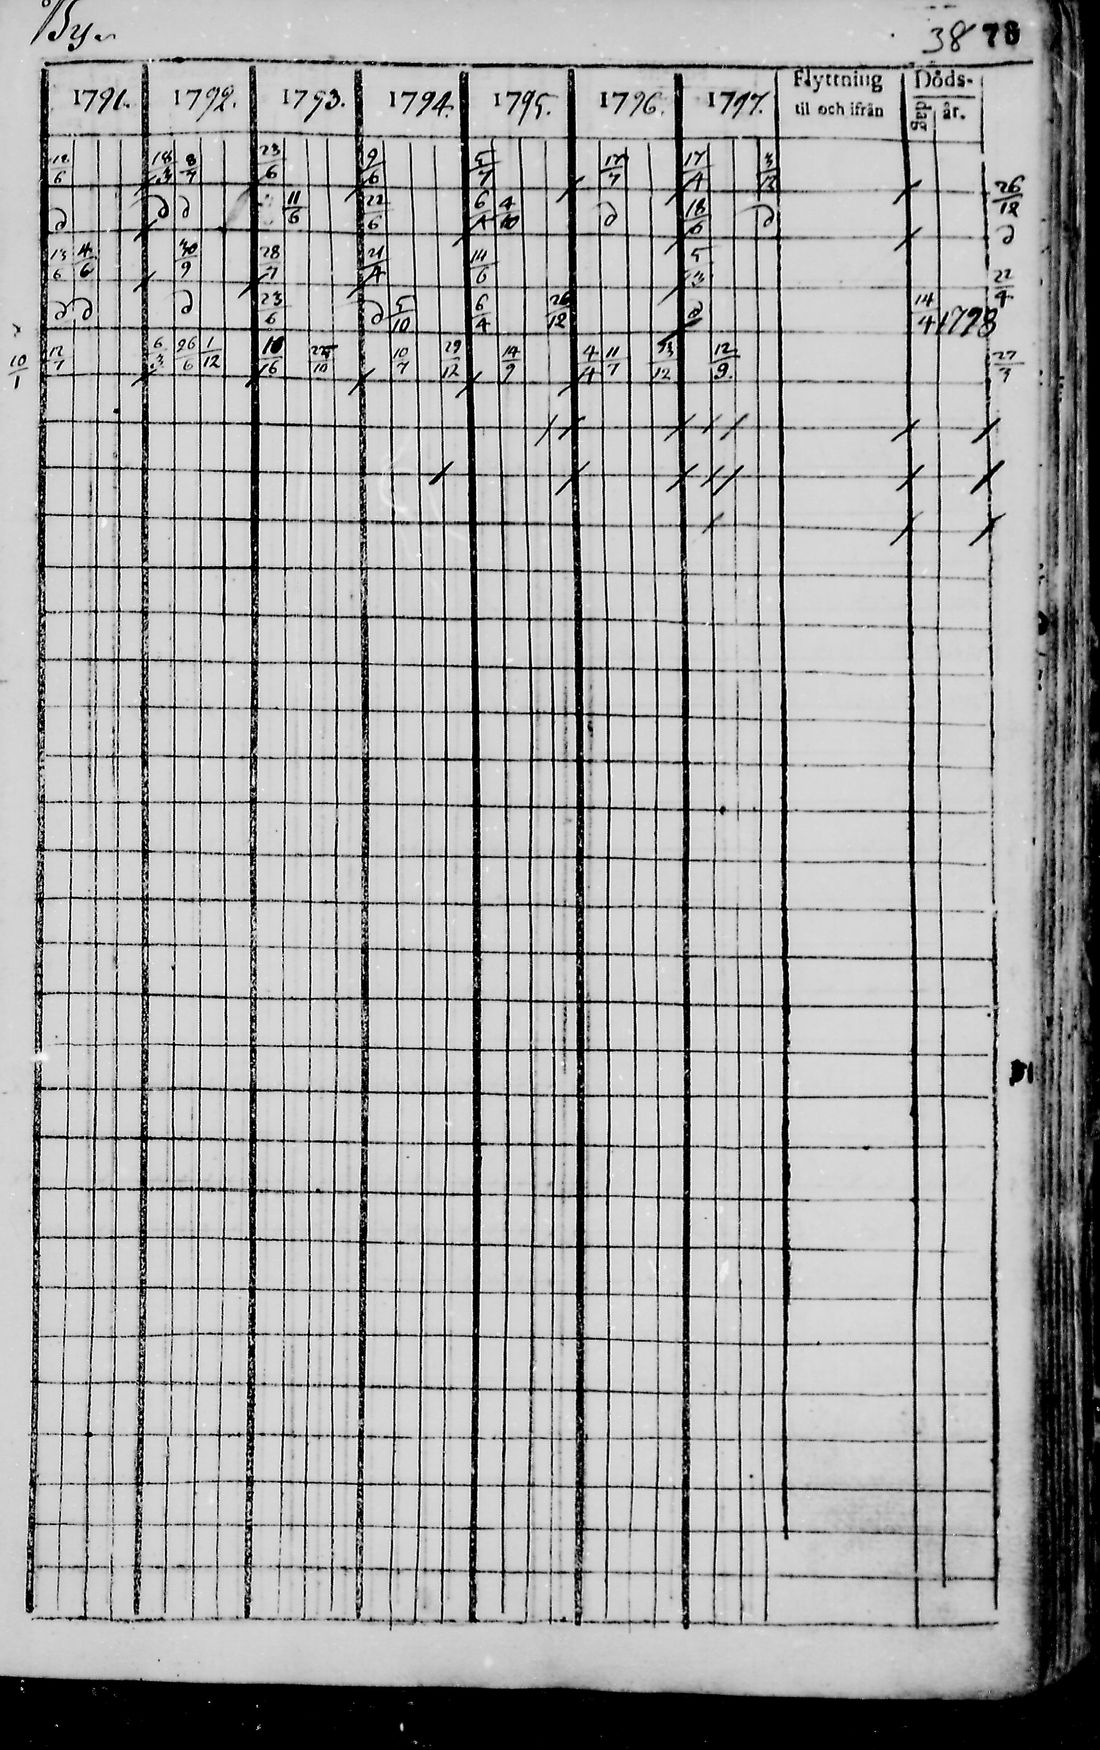 By.
38 78
1791. 1792. 1793. 1794. 1795. 1796. 1797. Flyttning til och ifrån Döds- dag år.
12/6 18/3 8/7 23/6 9/6 5/7 17/7 17/4 3/3 26/12
∂ ∂ ∂ 11/6 22/6 6/4 4/10 ∂ 18/6 ∂ ∂
13/6 4/6 30/9 28/7 21/4 14/6 5/3 22/4
∂ ∂ ∂ 23/6 ∂ 5/10 6/4 26/12 ∂ 14/4 1798
10/1 12/7 6/3 26/6 1/12 10/7 29/12 14/9 4/4 11/7 12/9 27/3